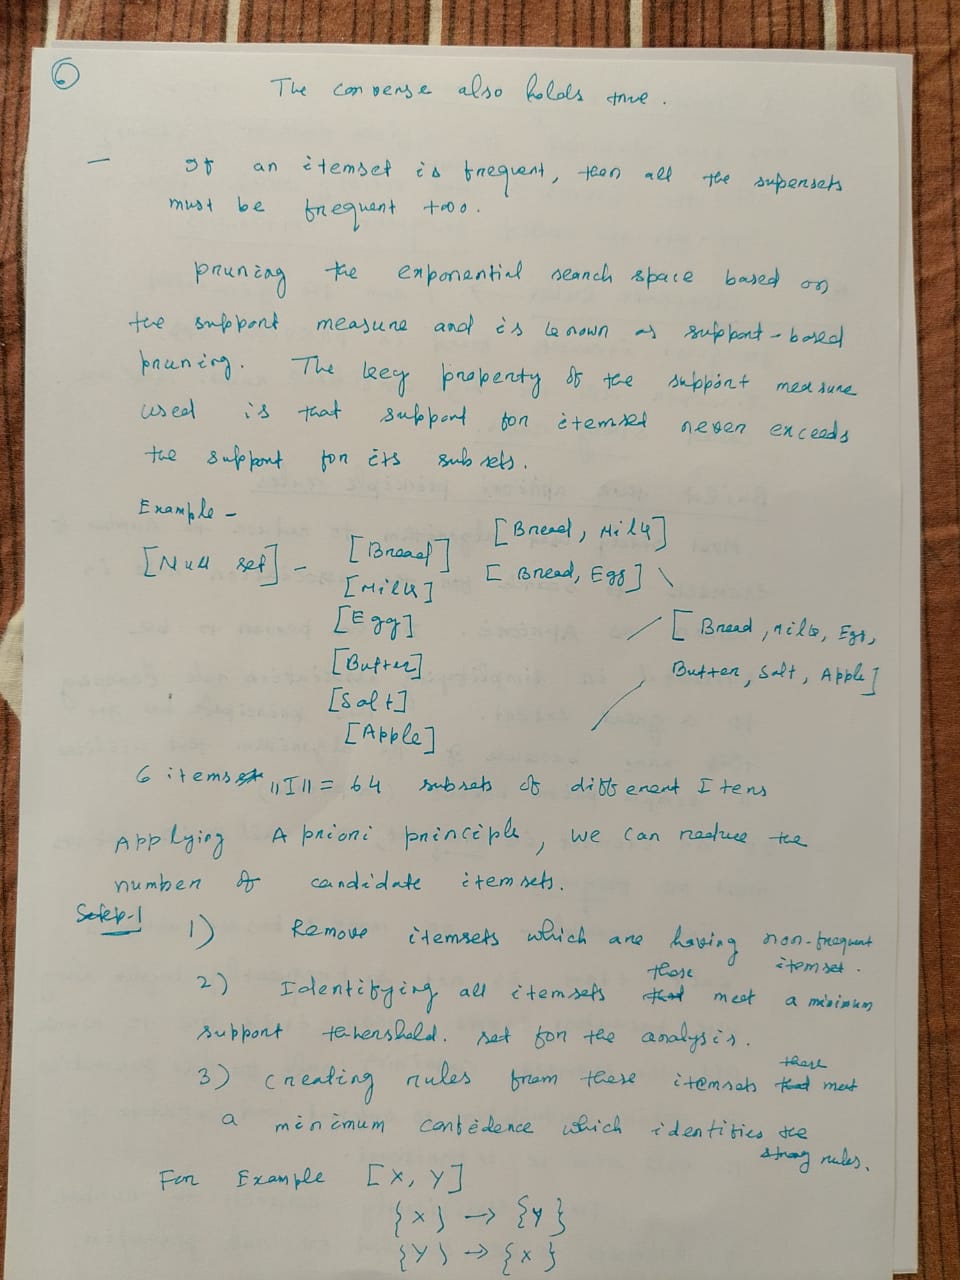 6
The converse also holds true.
— If an itemset is frequent, then all the supersets
must be frequent tooo.
pruning the exponential search space based on
the support measure and is known as support-based
pruning. The key property of the support measure
used is that support for itemset never exceeds
the support for its subsets.
Example -
[Null set] - [Bread] [Bread, Milk]
[Milk] [Bread, Egg]
[Egg] [Bread, Milk, Egg,
[Butter] Butter, Salt, Apple]
[Salt]
[Apple]
6 items "I" = 64 subsets of different Items
Applying Apriori principle, we can reduce the
number of candidate itemsets.
Step-1 1) Remove itemsets which are having non-frequent
itemset.
2) Identifying all itemsets those meet a minimum
support threshold. set for the analysis.
3) Creating rules from these itemsets these meet
a minimum confidence which identifies the
strong rules.
For Example [X, Y]
{X} → {Y}
{Y} → {X}